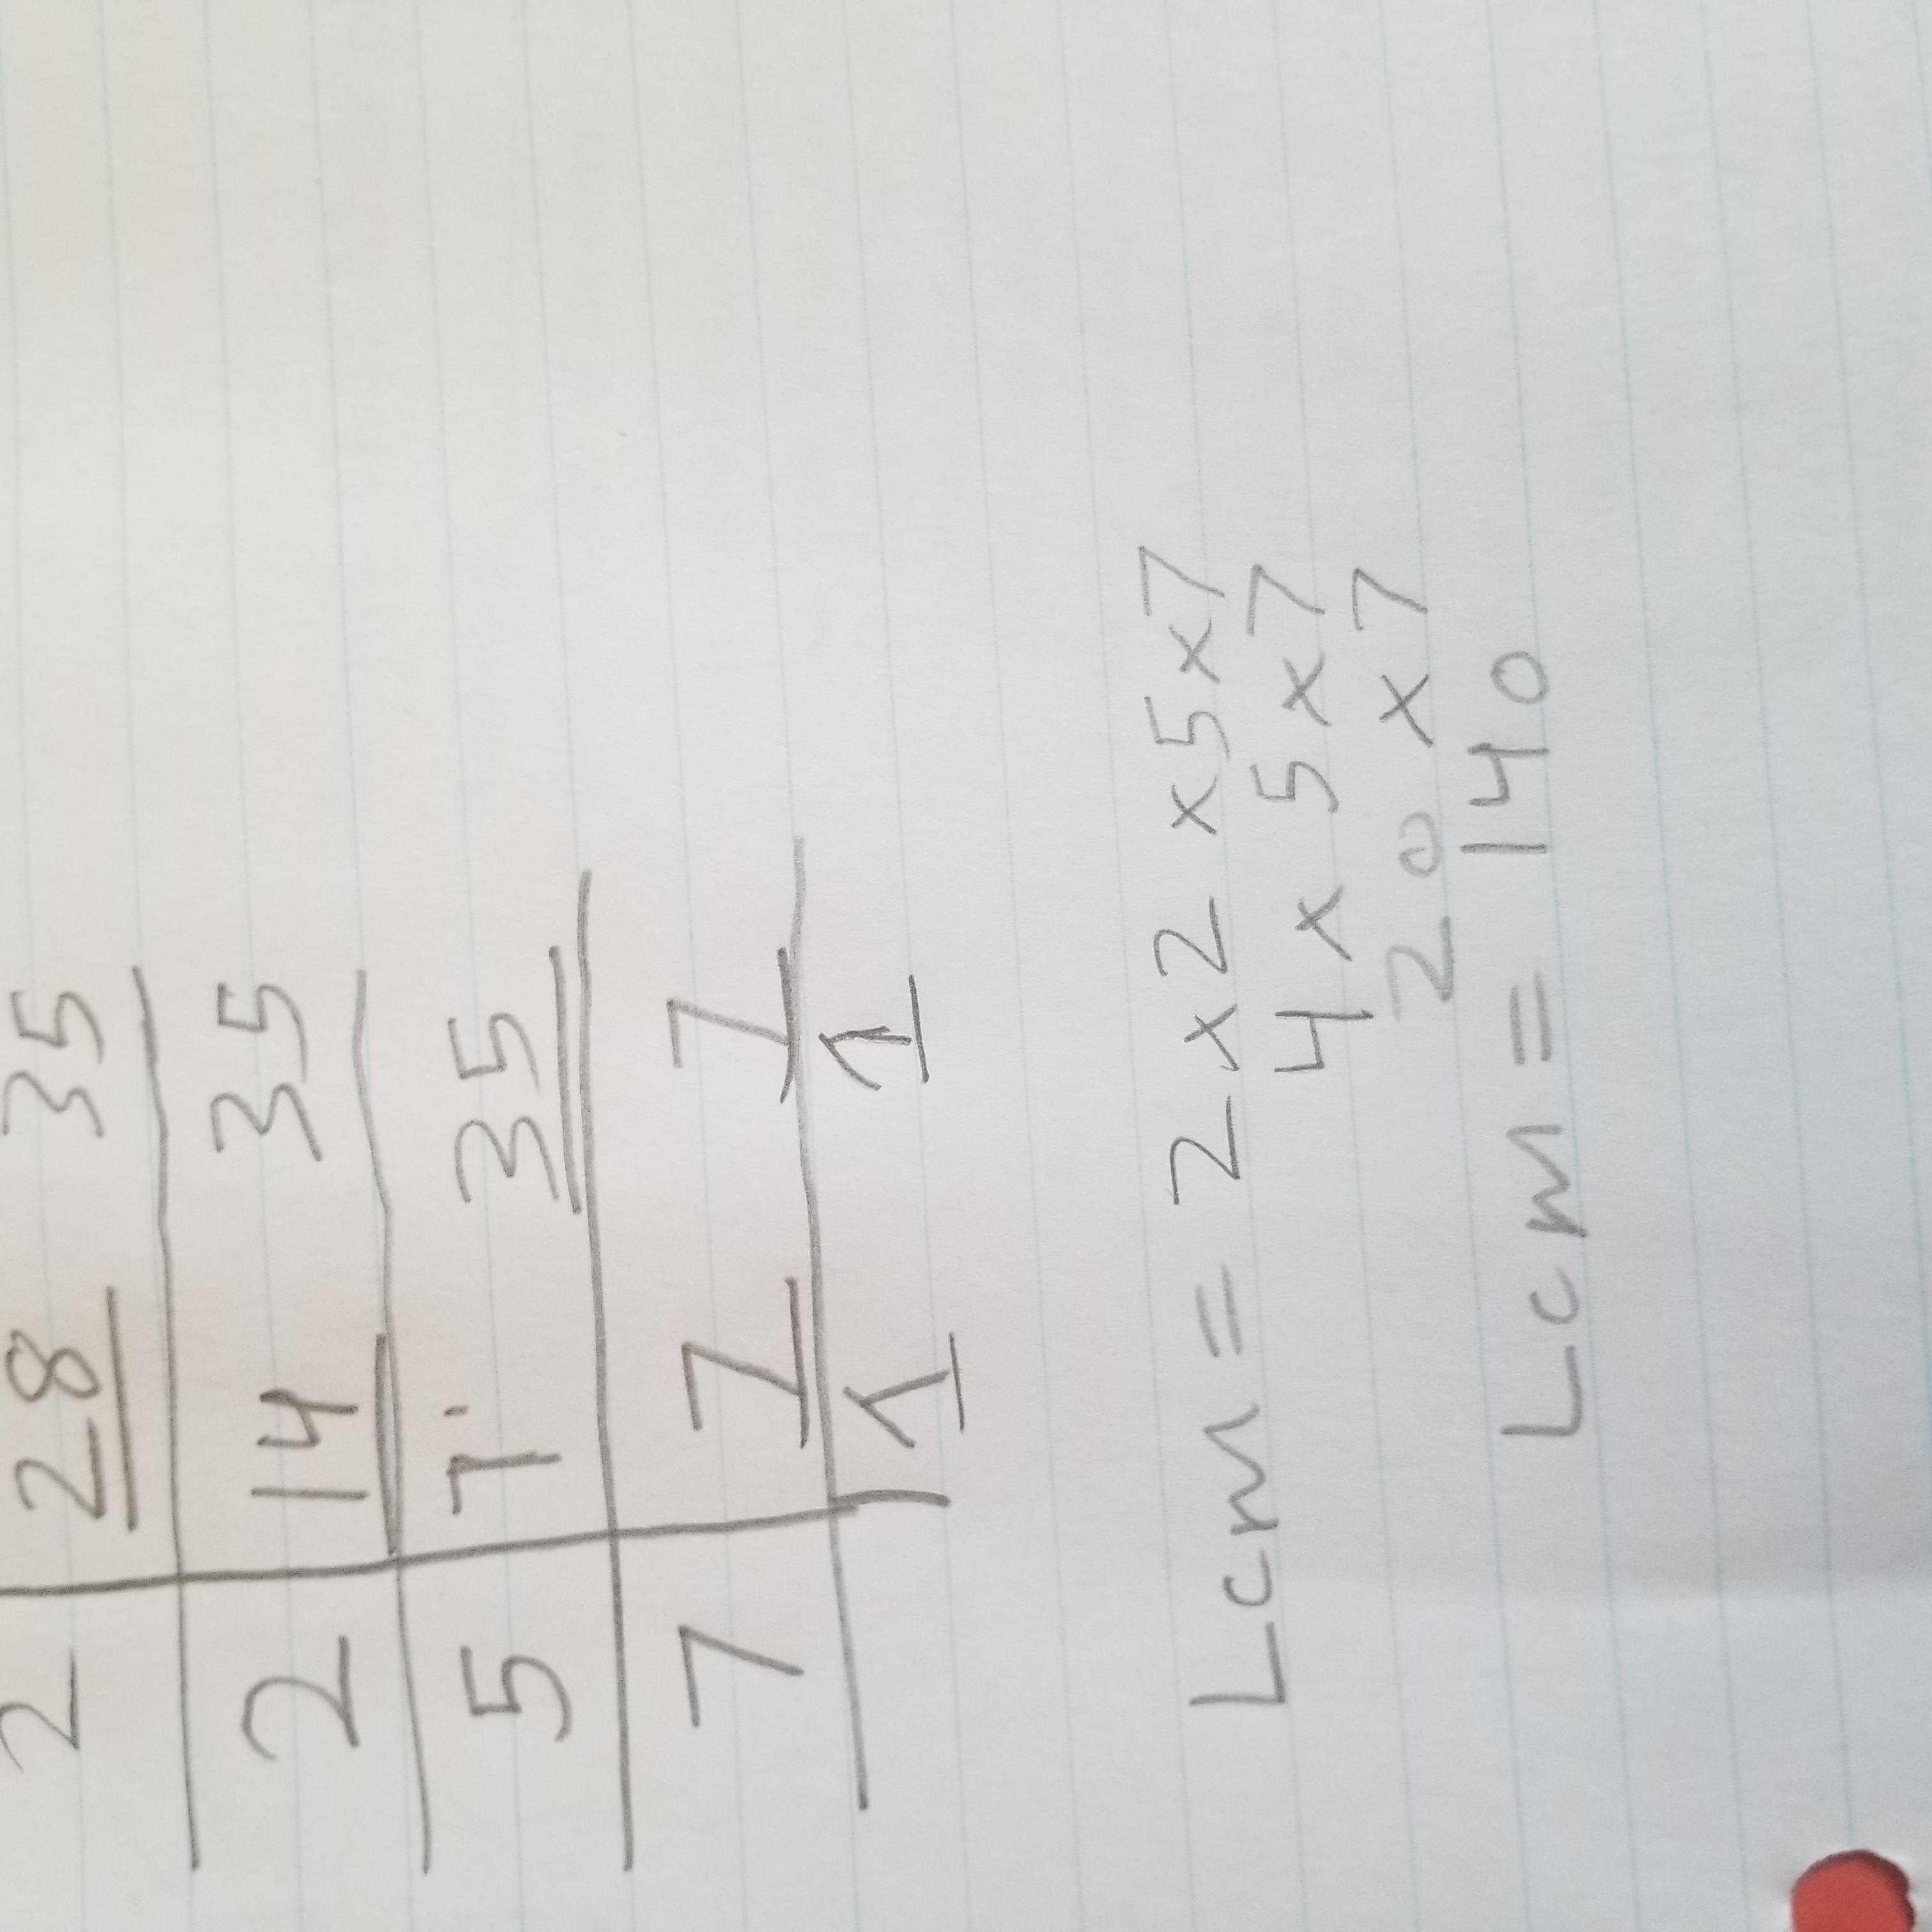 2 28 35
2 14 35
5 7 35
7 7 7
1 1
Lcm = 2 x 2 x 5 x 7
4 x 5 x 7
20 x 7
Lcm = 140